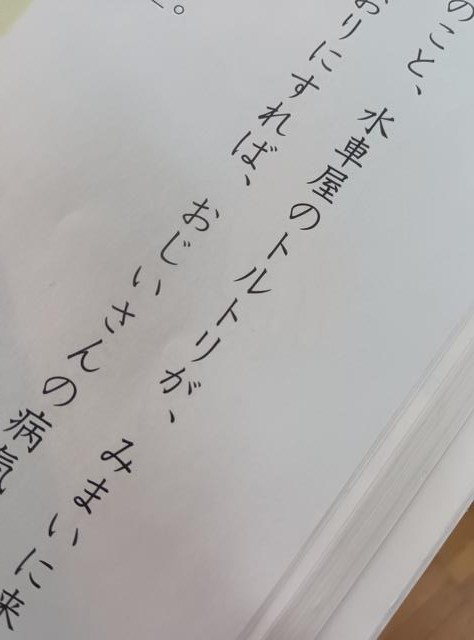 のこと、水車屋のトルトリが、みまいに来
おりにすれば、おじいさんの病気
。